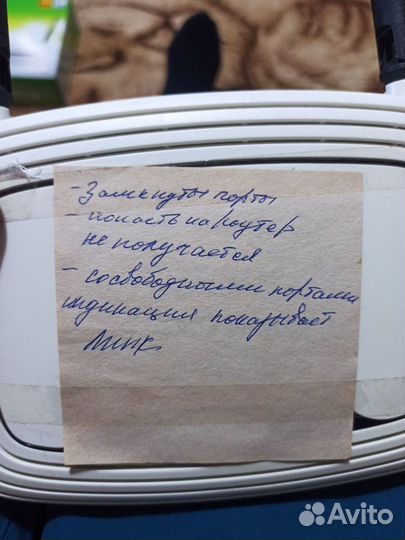 - Замкнуты порты
- попасть на роутер
не получается
- со свободными портами
индикация показывает
линк
Avito